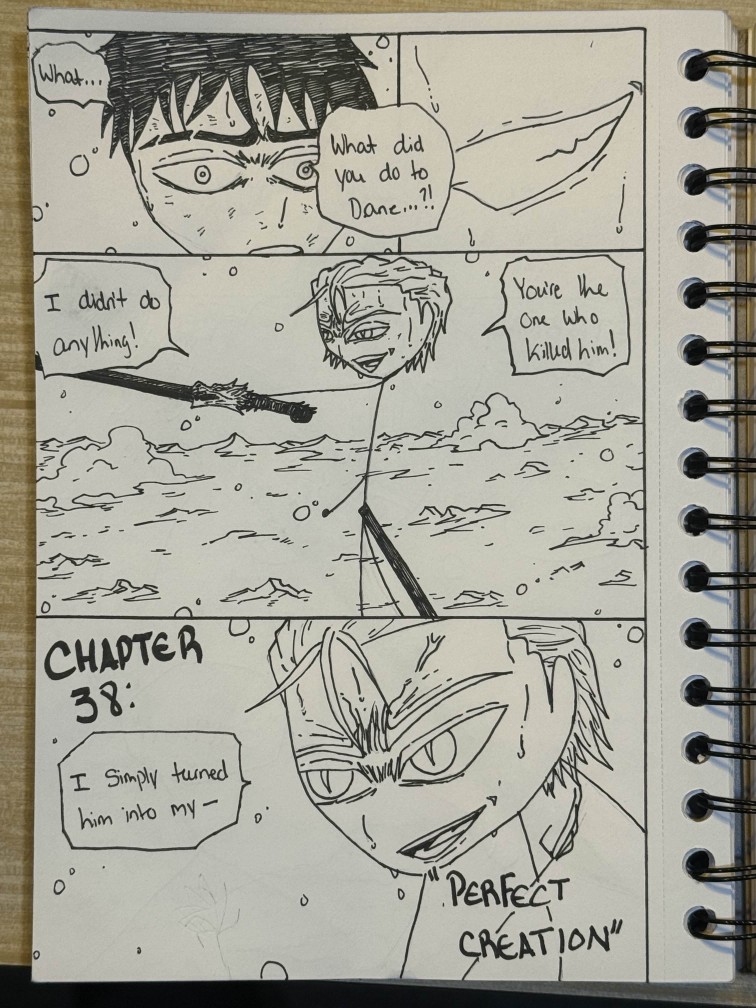 What...
What did
you do to
Dane...?!
I didn't do
anything!
You're the
one who
killed him!
CHAPTER
38:
I simply turned
him into my—
"PERFECT
CREATION"